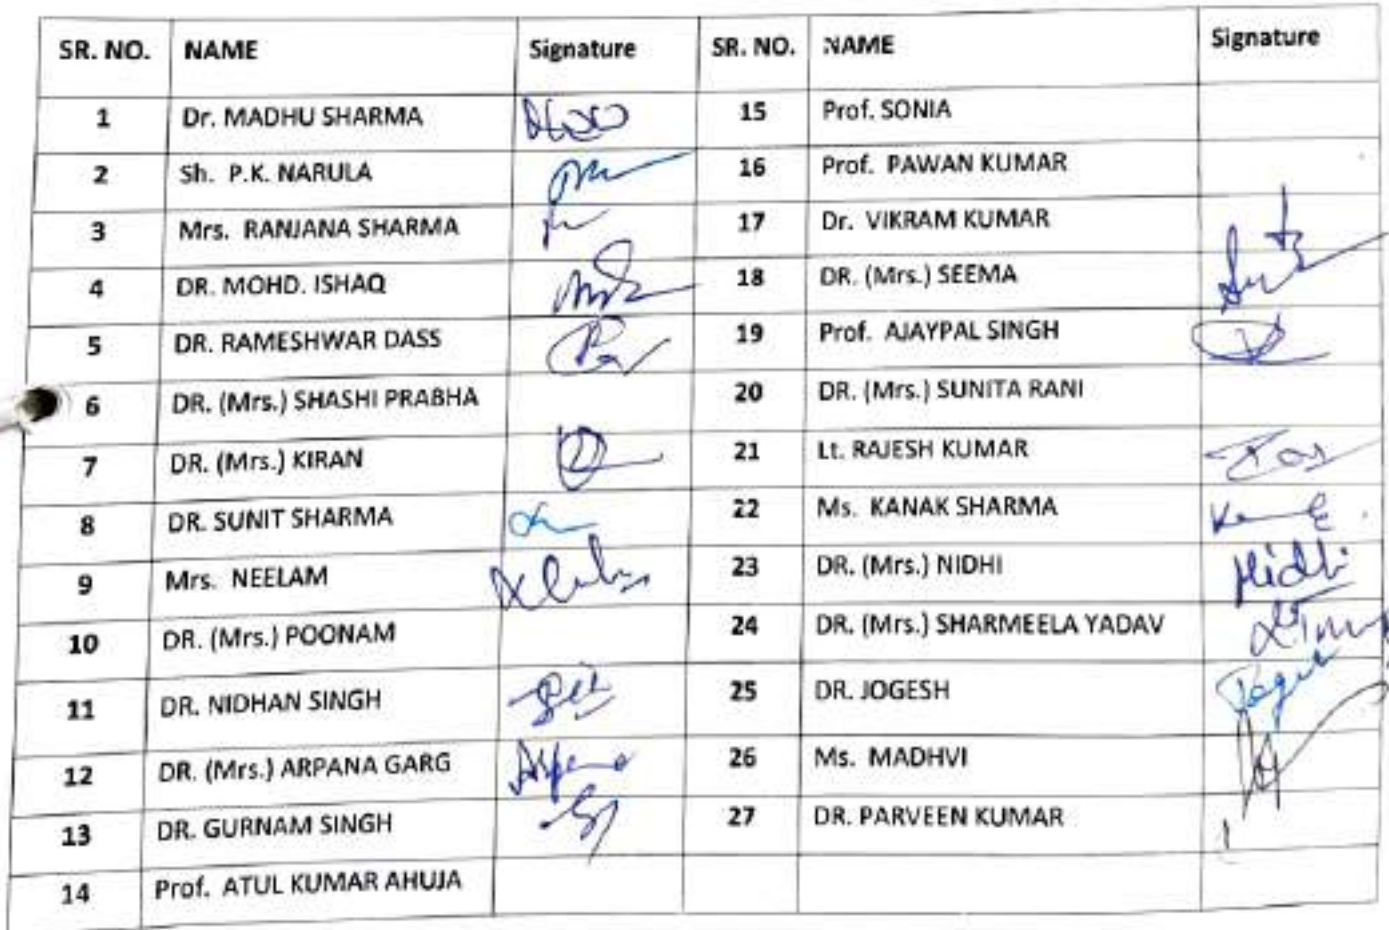 SR. NO. NAME Signature SR. NO. NAME Signature
1 Dr. MADHU SHARMA 15 Prof. SONIA
2 Sh. P.K. NARULA 16 Prof. PAWAN KUMAR
3 Mrs. RANJANA SHARMA 17 Dr. VIKRAM KUMAR
4 DR. MOHD. ISHAQ 18 DR. (Mrs.) SEEMA
5 DR. RAMESHWAR DASS 19 Prof. AJAYPAL SINGH
6 DR. (Mrs.) SHASHI PRABHA 20 DR. (Mrs.) SUNITA RANI
7 DR. (Mrs.) KIRAN 21 Lt. RAJESH KUMAR
8 DR. SUNIT SHARMA 22 Ms. KANAK SHARMA
9 Mrs. NEELAM 23 DR. (Mrs.) NIDHI Nidhi
10 DR. (Mrs.) POONAM 24 DR. (Mrs.) SHARMEELA YADAV
11 DR. NIDHAN SINGH 25 DR. JOGESH
12 DR. (Mrs.) ARPANA GARG Arpana 26 Ms. MADHVI
13 DR. GURNAM SINGH 27 DR. PARVEEN KUMAR
14 Prof. ATUL KUMAR AHUJA